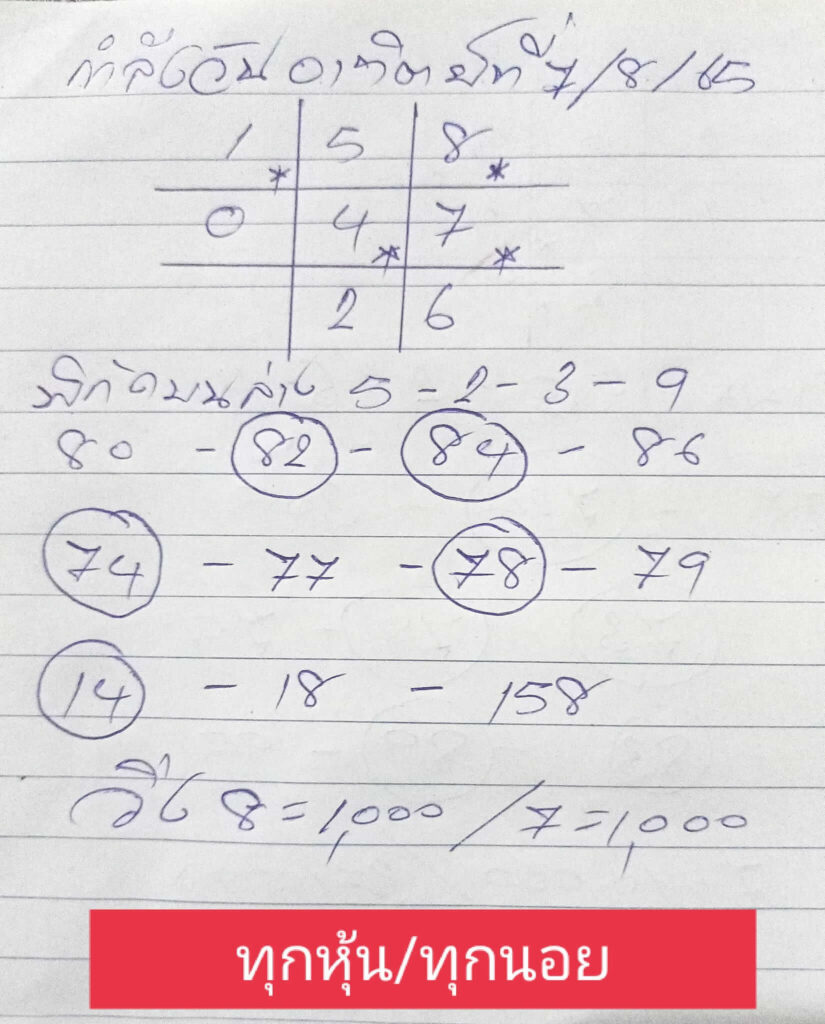 กำลังวันอาทิตย์ที่ 7/8/65
1 * 5 8 *
0 4 * 7 *
2 6
พิกัดบนล่าง 5 - 2 - 3 - 9
80 - 82 - 84 - 86
74 - 77 - 78 - 79
14 - 18 - 158
วิ่ง 8 = 1,000 / 7 = 1,000
ทุกหุ้น/ทุกนอย